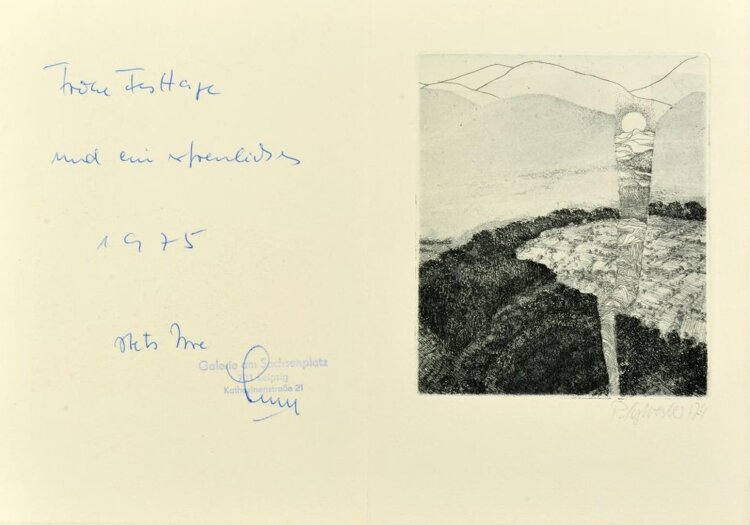 Frohe Festtage
und ein erfreuliches
1975
stets Ihre
Galerie am Sachsenplatz
701 Leipzig
Katharinenstraße 21
P. Sylvester 74